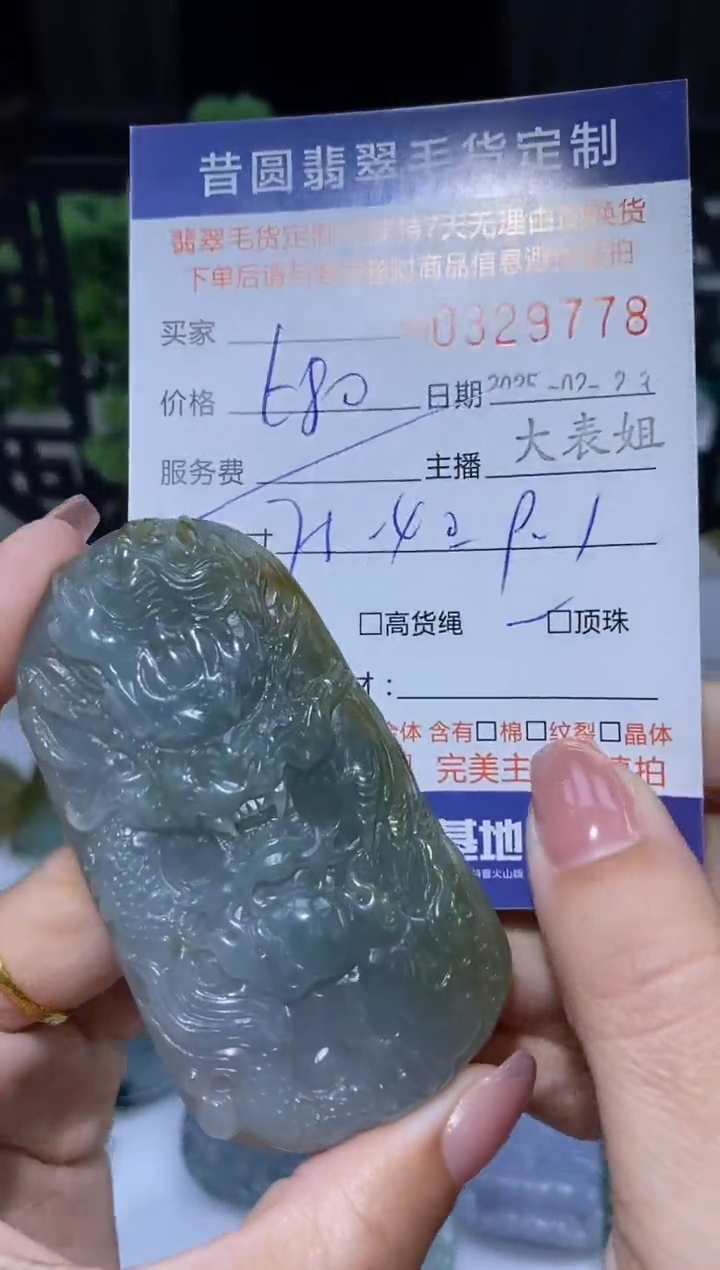 昔圆翡翠毛货定制
翡翠毛货定制 持7天无理由退换货
下单后请与 商品信息 拍
买家 0329778
价格 680 日期 2025-02-23
服务费 主播 大表姐
寸 71-42-9-1
□高货绳 □顶珠
材：
含有□棉□纹裂□晶体
完美主 拍
基地
抖音火山版